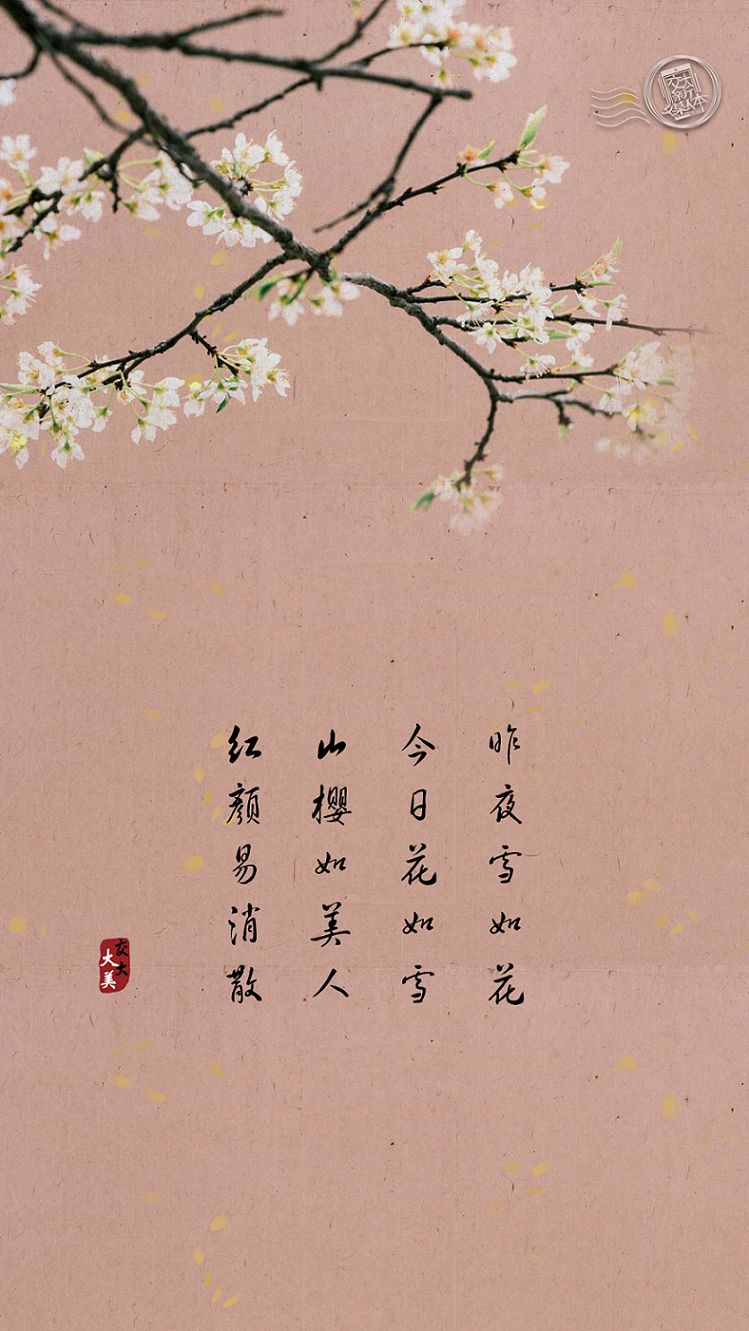 昨夜雪如花
今日花如雪
山樱如美人
红颜易消散
交大
大美
交大新媒体